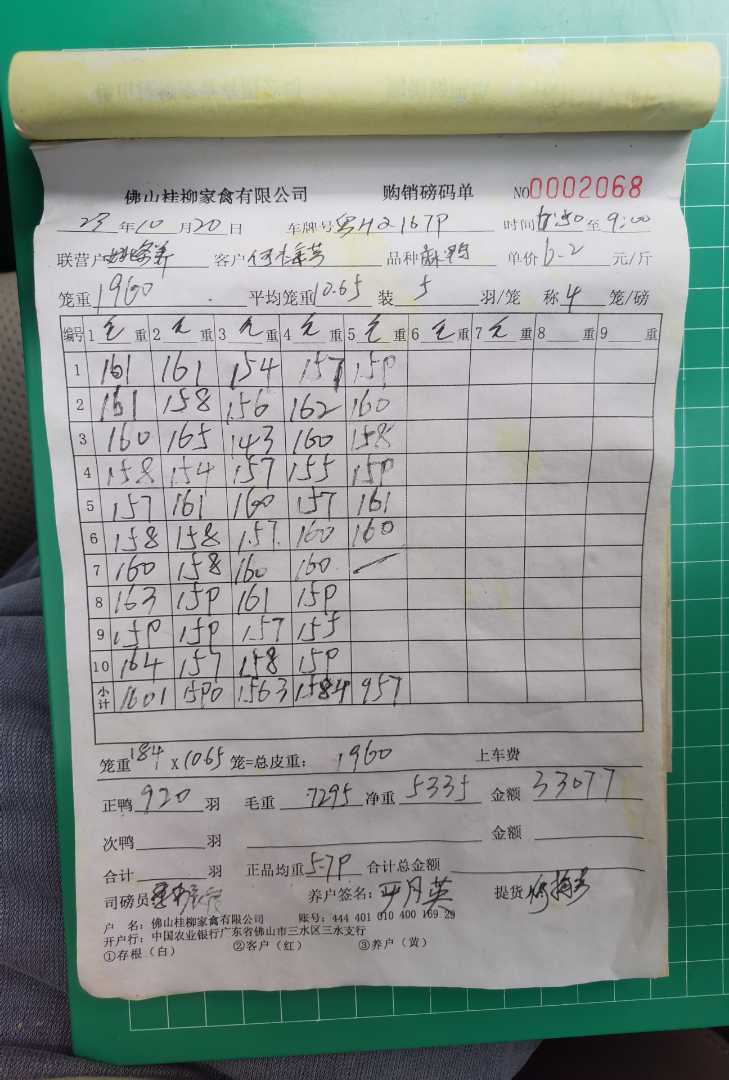 佛山桂柳家禽有限公司 购销磅码单 NO0002068
23年10月20日 车牌号粤H2-167P 时间 至9:00
联营户 客户何 品种麻鸭 单价6-2元/斤
笼重1960 平均笼重10.65装5羽/笼 称4笼/磅
编号 1毛重 2毛重 3毛重 4毛重 5毛重 6毛重 7毛重 8重 9重
1 161 161 154 157 15P
2 161 158 156 162 160
3 160 165 143 160 158
4 158 154 157 155 15P
5 157 161 160 157 161
6 158 158 157 160 160
7 160 158 160 160 —
8 163 15P 161 15P
9 15P 15P 157 155
10 164 157 158 15P
小计 1601 15P0 1563 1584 957
笼重184×10.65笼=总皮重:1960 上车费
正鸭920羽 毛重7295净重5335金额33077
次鸭羽 金额
合计羽 正品均重5-7P合计总金额
司磅员 养户签名: 月英 提货
户 名:佛山桂柳家禽有限公司 账号:444 401 010 400 169 29
开户行:中国农业银行广东省佛山市三水区三水支行
①存根(白) ②客户(红) ③养户(黄)